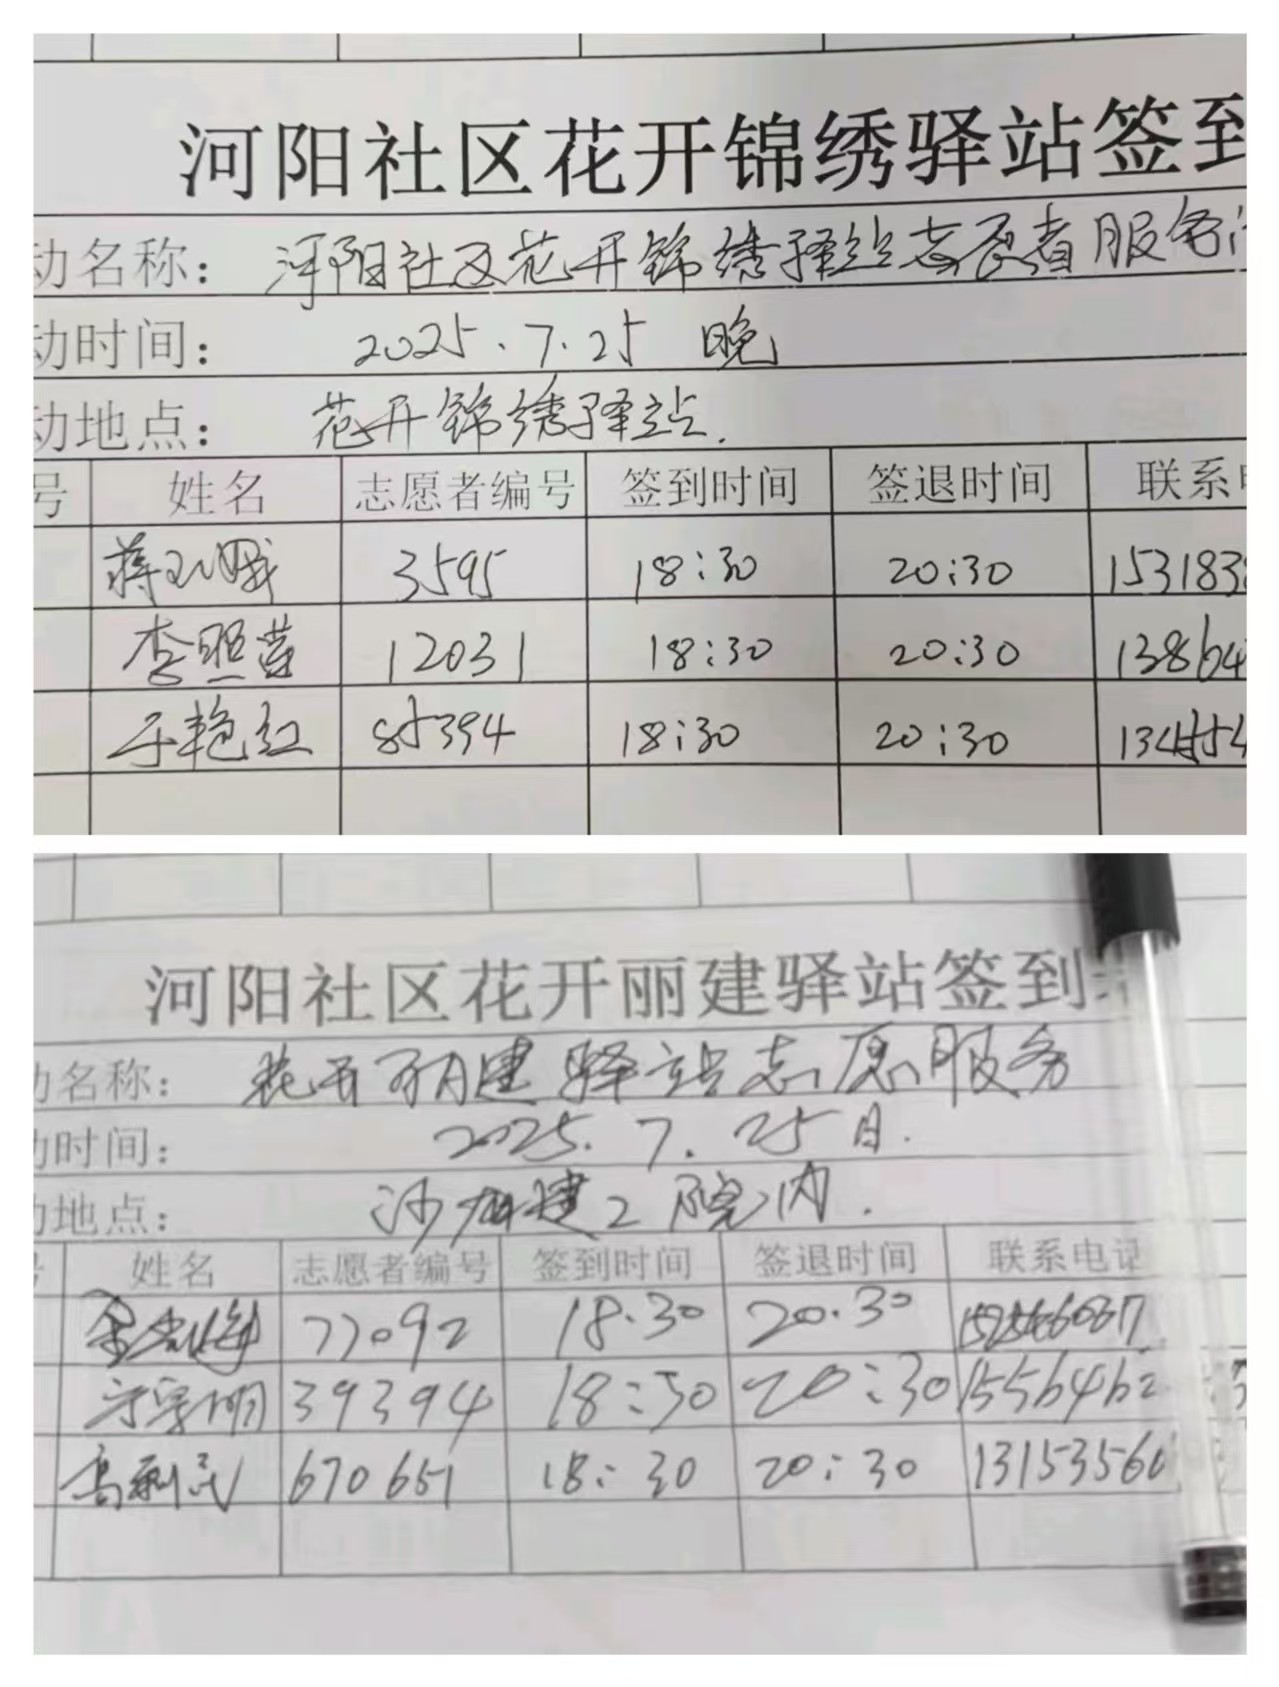 河阳社区花开锦绣驿站签到
动名称： 河阳社区花开锦绣驿站志愿者服务
动时间： 2025.7.25 晚
动地点： 花开锦绣驿站.
号 姓名 志愿者编号 签到时间 签退时间 联系
蒋玉娥 3595 18:30 20:30 153183
李照莲 12031 18:30 20:30 13864
于艳红 85394 18:30 20:30
河阳社区花开丽建驿站签到
动名称： 花开丽建驿站志愿服务
动时间： 2025.7.25日.
动地点： 院内.
号 姓名 志愿者编号 签到时间 签退时间 联系电话
77092 18.30 20.30
39394 18:30 20:30 1556462
高利民 670651 18:30 20:30 13153560